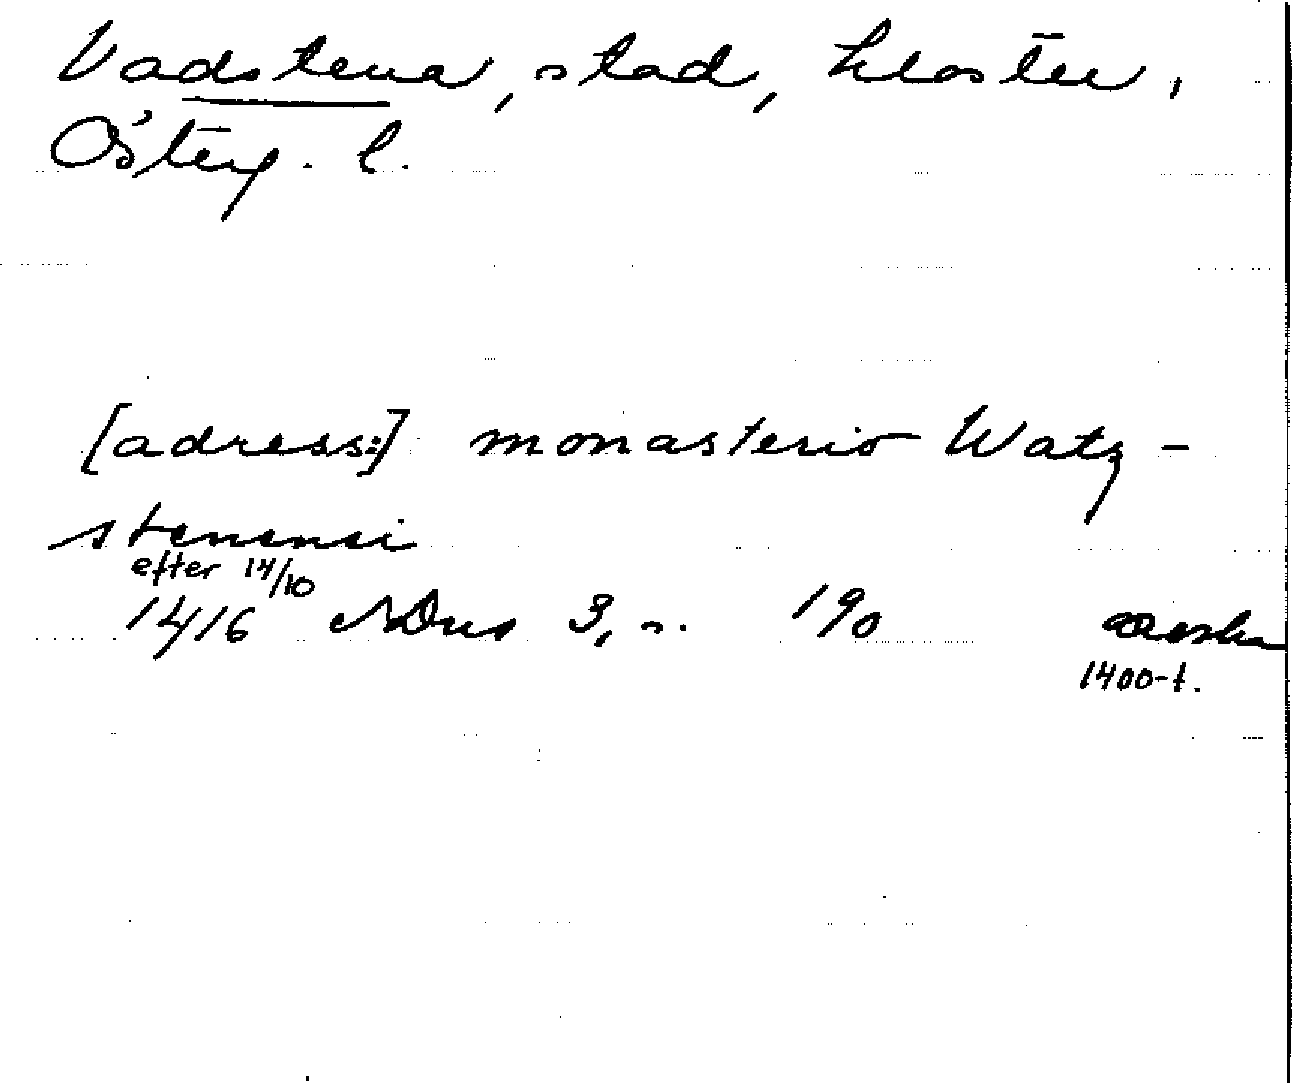 Vadstena, stad, kloster,
Österg. l.
[adress:] monasterio Watz-
stenensi
efter 14/10
1416 ADns 3, s. 190
1400-t.